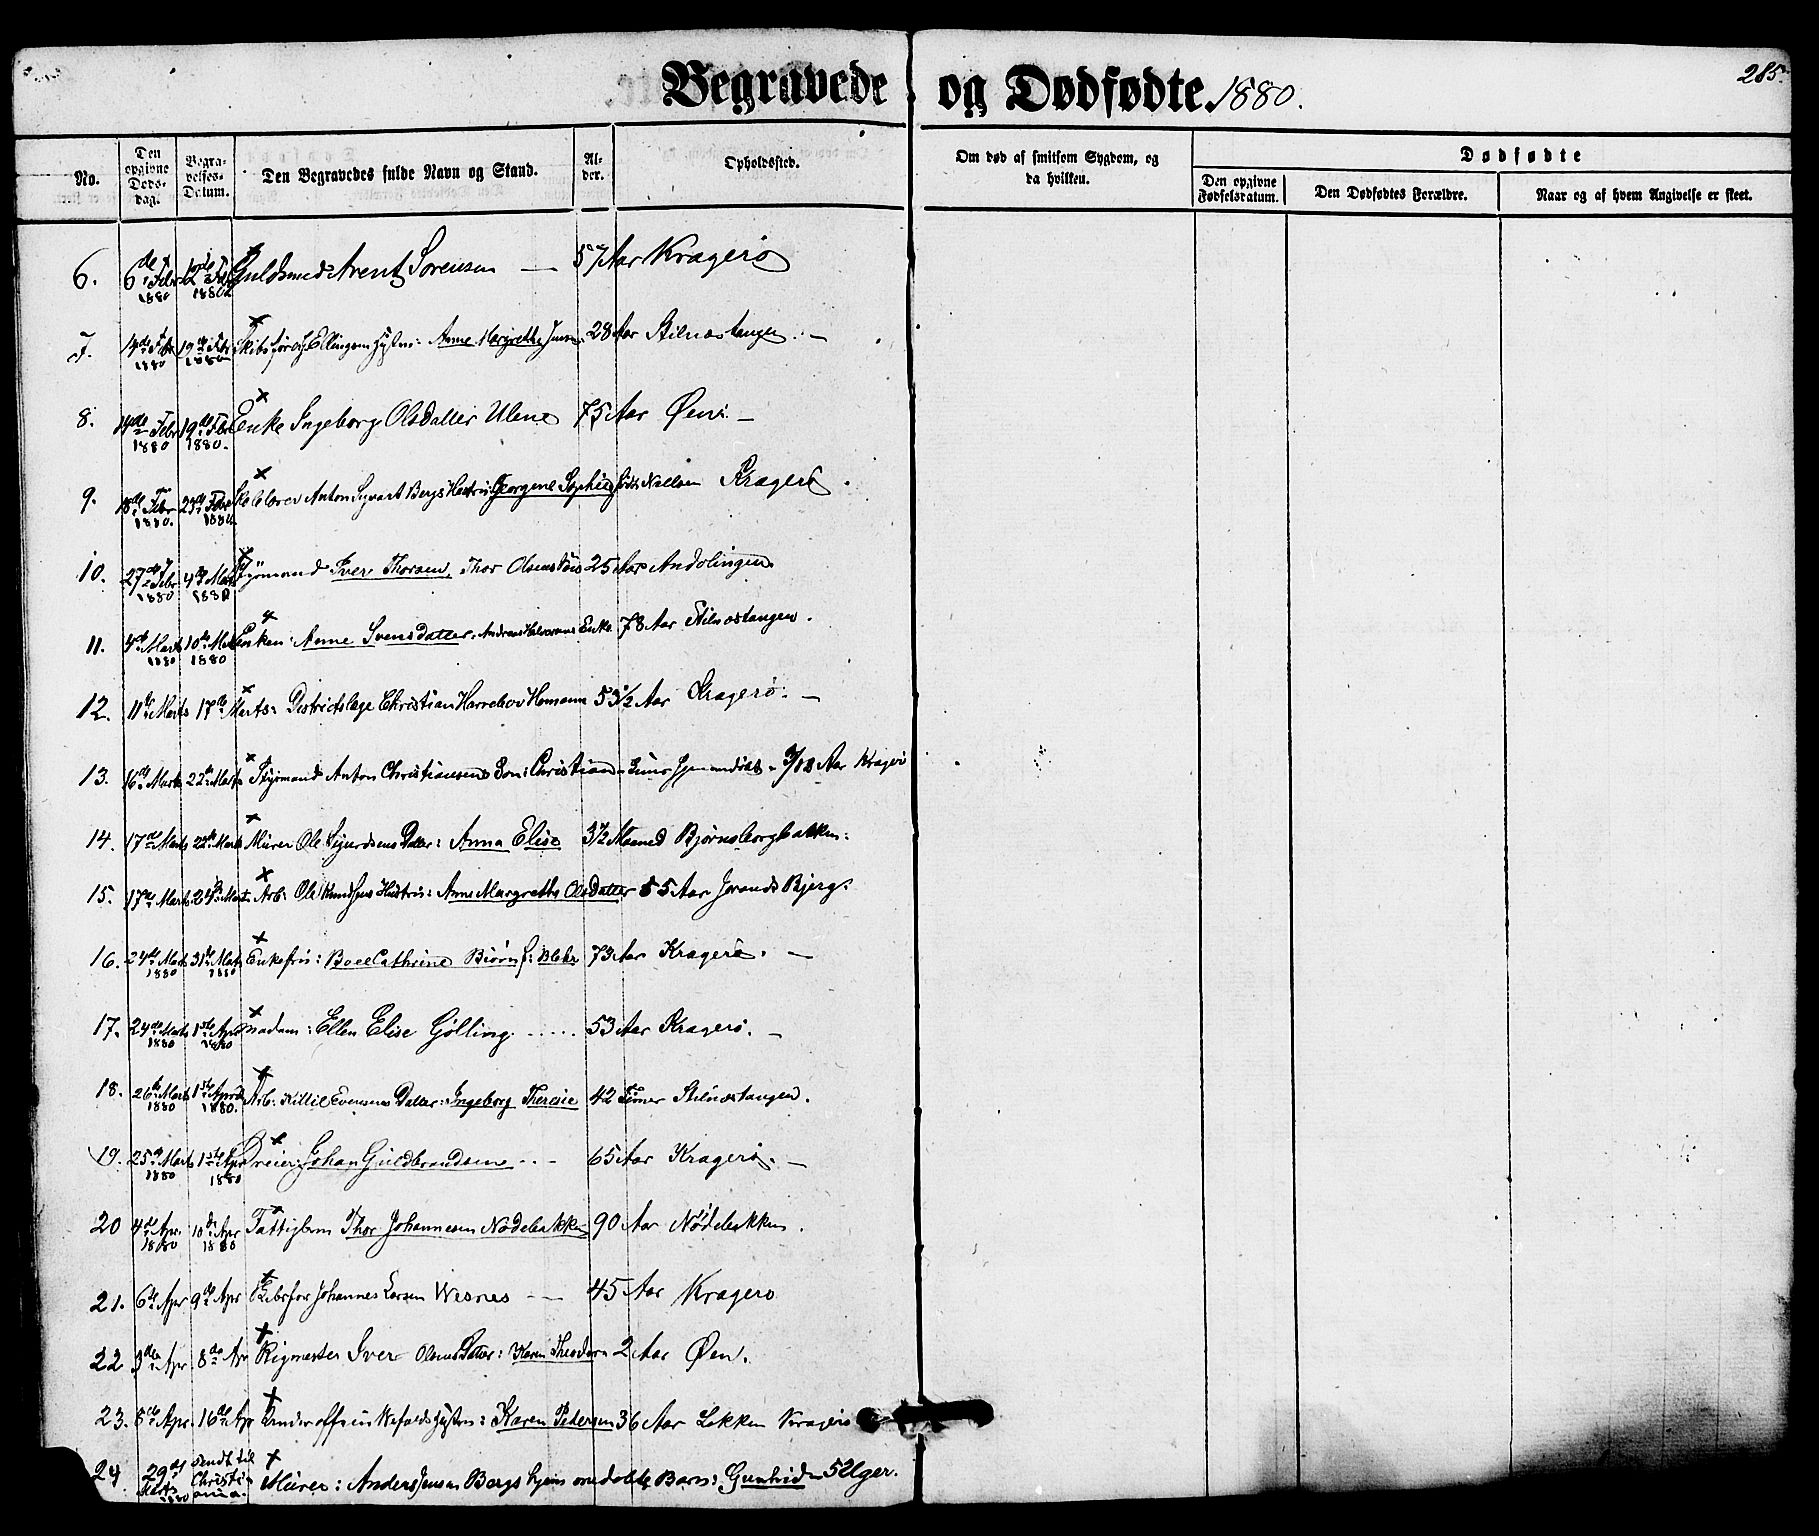 Begravede og Dødfødte. 1880.
285.
No.
Den opgivne Døds-dag.
Begra-velses-Datum.
Den Begravedes fulde Navn og Stand.
Al-der.
Opholdssted.
Om død af smitsom Sygdom, og da hvilken.
Dødfødte
Den opgivne Fødselsdatum.
Den Dødfødtes Forældre.
Naar og af hvem Angivelse er skeet.
6. 6de Febr 1880 12te Febr 1880 Guldsmed Arent Sörensen — 57 Aar Kragerö
7. 14de Febr 1880 19de Febr 1880 Ellingsens Hustru: Anne Margrethe 28 Aar Stilnæstangen. —
8. 14de Febr 1880 19de Febr 1880. Enke Ingeborg Olsdatter Ulene 75 Aar Øen. —
9. 18de Febr 1880. 23de Febr 1880 Anton Syvart Bergs Hustru: Georgene Sophie født Nielsen Kragerö.
10. 27de Febr 1880 4de Marts 1880 Styrmand Iver Thorsen, Thor Olsens Sön 25 Aar Andolingen
11. 4de Marts 1880 10de Marts 1880 Enken: Anne Svensdatter. Andreas Halvorsens Enke 78 Aar Stilnæstangen.
12. 11te Marts 17de Marts: Districtslæge Christian Horrebov Homann 53 1/2 Aar Kragerö. —
13. 16de Marts 22de Marts Styrmand Anton Christiansens Sön: Christian 3/12 Aar Kragerö
14. 17de Marts 22de Marts Mürer Ole Sjurdsens Datter: Anna Elise 3 1/2 Maaned Bjørnsborgbakken:
15. 17de Marts 24de Marts Arb: Ole Knudsens Hustru: Anne Margrethe Olsdatter 55 Aar Jorands Bjerg.
16. 24de Marts 1880 31te Marts 1880 Enkefru: Boel Cathrine Biörn f: Blehr 73 Aar Kragerö. —
17. 24de Marts 1880 1ste Apr 1880 madam: Ellen Elise Gjölling ..... 53 Aar Kragerö. —
18. 26de Marts 1880 1ste April 1880. Arb: Killil Evensens Datter: Ingeborg Therese 42 Timer Stilnæstangen.
19. 25de Marts 1880 1ste Apr 1880 Dreier: Johan Guldbrandsen — 65 Aar Kragerö. —
20 4de Apr. 1880 10de Apr 1880 Fattiglem Thor Johannesen Nödebakken 90 Aar Nödebakken.
21. 6te Apr 9de Apr Johannes Larsen Wesnes — 45 Aar Kragerö
22 3die Apr 8de Apr Rigmester Iver Olsens Datter: Karen Theodora 2 Aar Øen.
23. 8de Apr. 16de Apr Hustru: Karen Pedersen 36 Aar Lökken Kragerö
24 29de Marts 1880 sendt til Christiania. Mürer: Anders Jensen Bergs hjemmedøbte Barn: Gunhild 5 Uger.